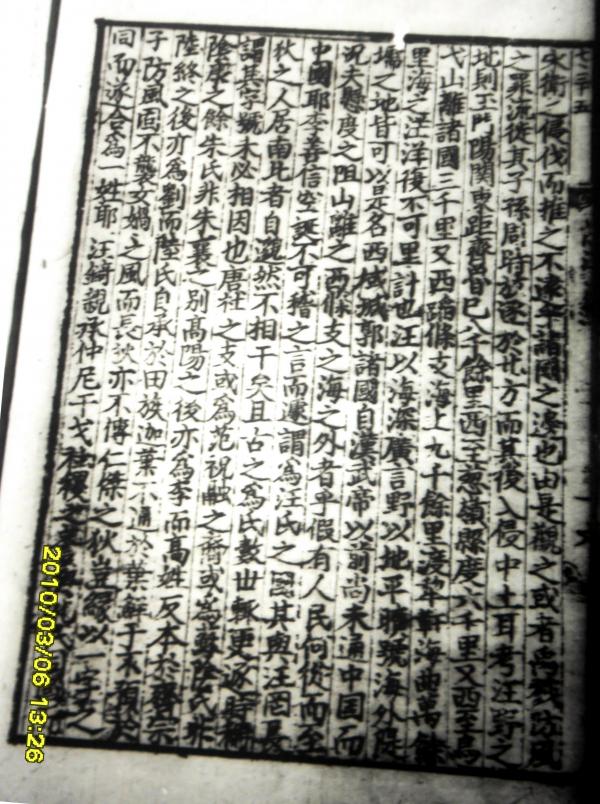 七平五
宋衛之侵伐而推之不遠年諸國之邊也由是觀之或者禹戮防風
之罪流徙其子孫居於逐於北方而其後入侵中土耳考汪芒之
地則玉門陽關東距齊魯已八千餘里西至葱嶺縣度六千里
弋山離諸國三千里又西踏條支海上九千餘里渡犂軒海曲萬餘
里海之汪洋復不可里計也汪以海深廣言野以地平曠號海外隄
壖之地皆可以是名西域城郭諸國自漢武帝以前尚未通中国而
况夫懸度之阻山離之西條支之海之外者乎假有人民何從而至
中國耶李善信空誕不可稽之言而遽謂為汪氏之國其與汪固長
狄之人居南北者自邈然不相干矣且古之為氏數世輒更逐時稱
謂其字號未必相因也唐杜之支或為范祝融之裔或為
陰康之餘朱氏非朱襄之別高陽之後亦為李而高姓反本於齊宗
陸終之後亦為劉而陸氏自承於田族迦葉不通於
子防風固不襲女媧之風而長狄亦不傳仁傑之狄豈緣以一字之
同而遂合為一姓耶汪錡親承仲尼干戈社稷之
2010/03/06 13:26